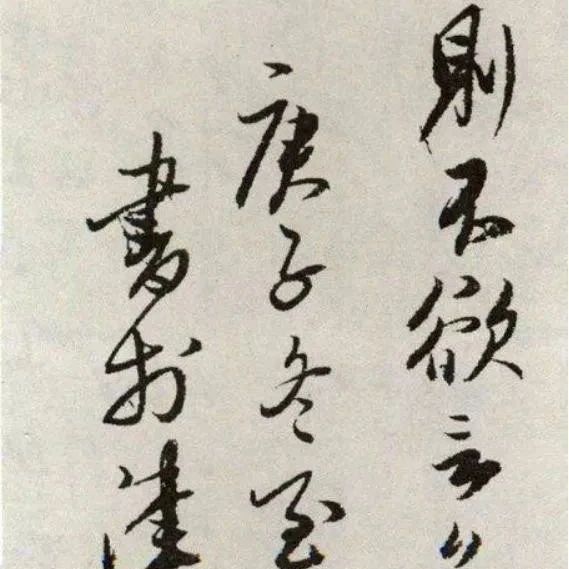 則不欲云々
庚子冬至
書於